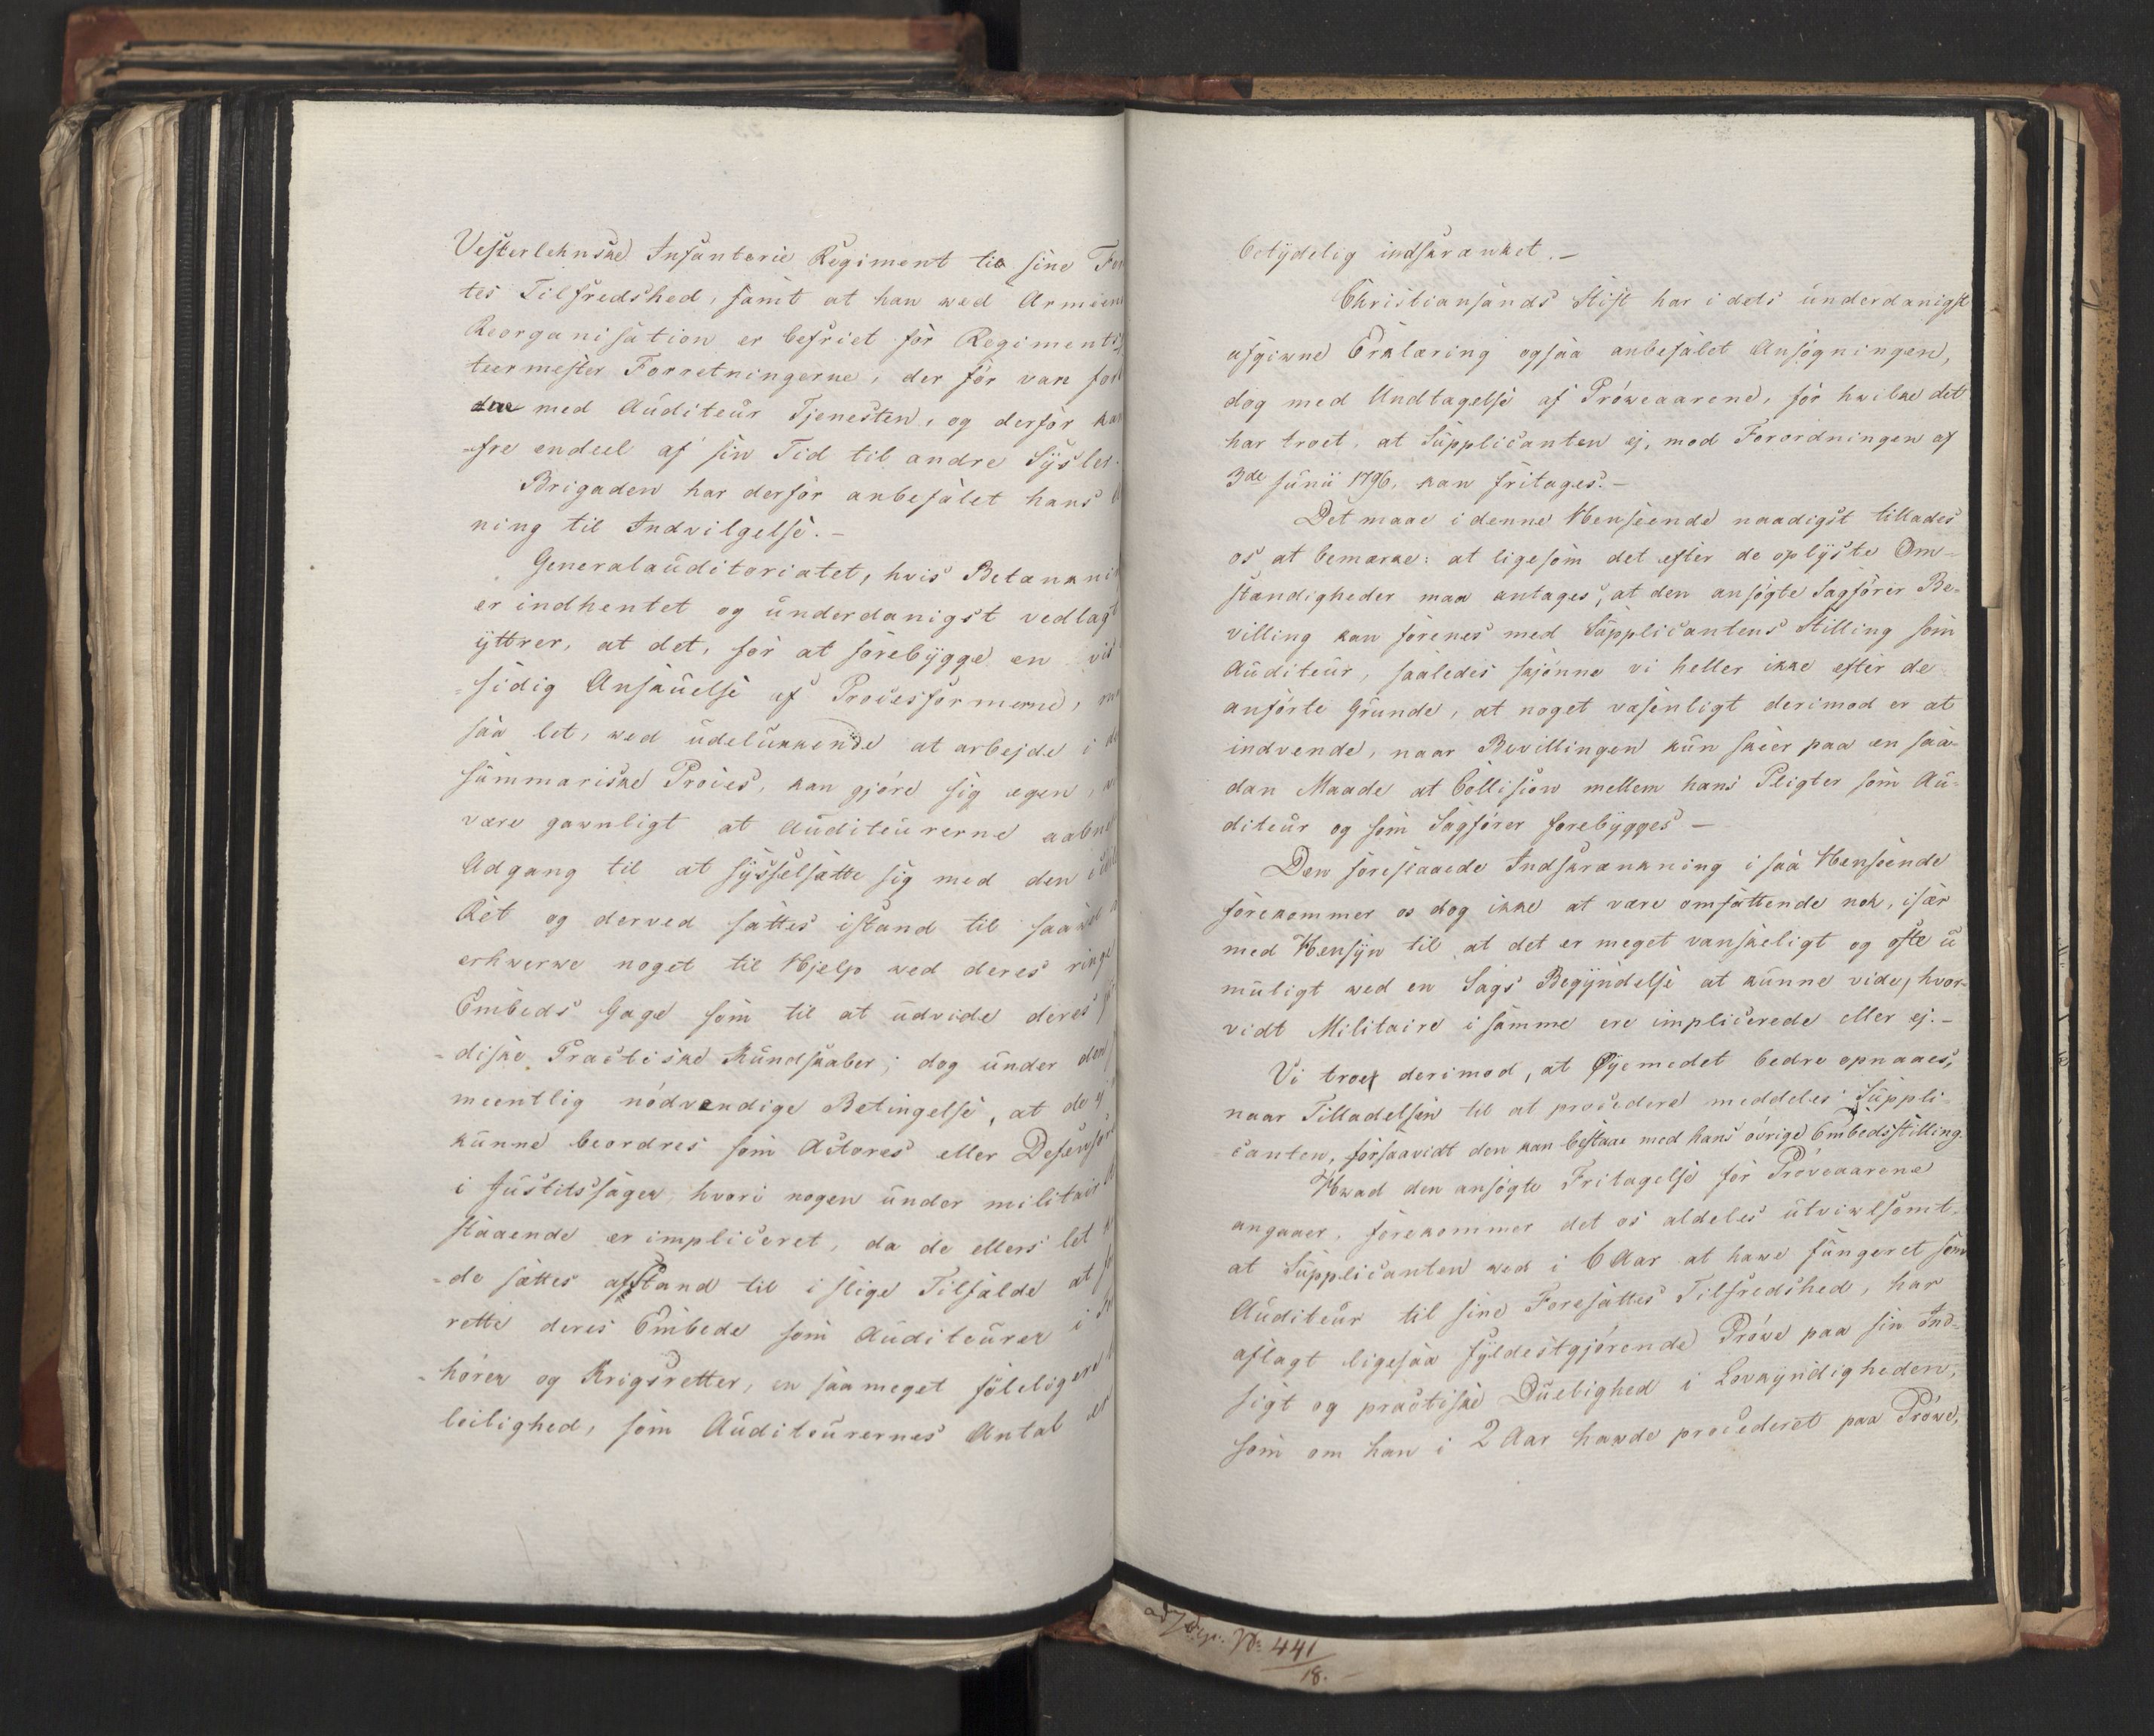 Vesterlehnske Infanterie Regiment til sine For
tes Tilfredshed, samt at han ved Armeens
Reorganisation er befriet for Regiments
teermester Forretningerne, der før vare for
dene med Auditeur Tjenesten, og derfor kan
fre endeel af sin Tid til andre Sysler.
Brigaden har derfor anbefalet hans
ning til Indvilgelse. –
Generalauditoriatet, hvis Betænkni
er indhentet og underdanigst vedlagt
yttrer, at det, for at forebygge en vis
=sidig Anskuelse af Procesformerne,
saa let, ved udelukkende at arbejde i
summariske Proces, kan gjøre sig egen,
være gavnligt at Auditeurerne aabnes
Adgang til at sysselsætte sig med den
Ret og derved sættes istand til saavel
erhverve noget til Hjelp ved deres ringe
Embeds Gage som til at udvide deres
=diske Practiske Kundskaber; dog under den
meentlig nødvendige Betingelse, at de ej
kunne beordres som Actores eller Defensore
i Justitssager, hvori nogen under militair
staaende er impliceret, da de ellers let
=de sættes afstand til i slige Tilfælde at
rette deres Embede som Auditeurer i
=hører og Krigsretter, en saameget følelig ere
leilighed, som Auditeurernes Antal er
betydelig indskrænket. –
Christiansands Stift har i dets underdanigst
afgivne Erklæring ogsaa anbefalet Ansøgningen,
dog med Undtagelse af Prøveaarene, for hvilke det
har troet, at Supplicanten ej, mod Forordningen af
3de Junii 1796, kan fritages. –
Det maae i denne Henseende naadigst tillades
os at bemærke: at ligesom det efter de oplyste Om=
stændigheder maa antages, at den ansøgte Sagfører Be=
villing kan forenes med Supplicantens Stilling som
Auditeur, saaledes skjønne vi heller ikke efter de
anførte Grunde, at noget væsenligt derimod er at
indvende, naar Bevillingen kun skeer paa en saa=
dan Maade at Collision mellem hans Pligter som Au=
diteur og som Sagfører forebygges –
Den foreslaaede Indskrænkning i saa Henseende
forekommer os dog ikke at være omfattende nok, især
med Hensyn til at det er meget vanskeligt og ofte u
muligt ved en Sags Begyndelse at kunne vide, hvor=
vidt Militaire i samme ere implicerede eller ej. –
Vi troe derimod, at Øjemedet bedre opnaaes,
naar Tilladelsen til at procedere meddeles Suppli=
canten, forsaavidt den kan bestaae med hans øvrige Embedsstilling.
Hvad den ansøgte Fritagelse for Prøveaarene
angaaer, forekommer det os aldeles utvivlsomt,
at Supplicanten ved i 6 Aar at have fungeret som
Auditeur til sine Foresattes Tilfredshed, har
aflagt ligesaa fyldestgjørende Prøve paa sin Ind=
sigt og practiske Duelighed i Lovkyndigheden,
som om han i 2 Aar havde procederet paa Prøve,
No 441
18. –